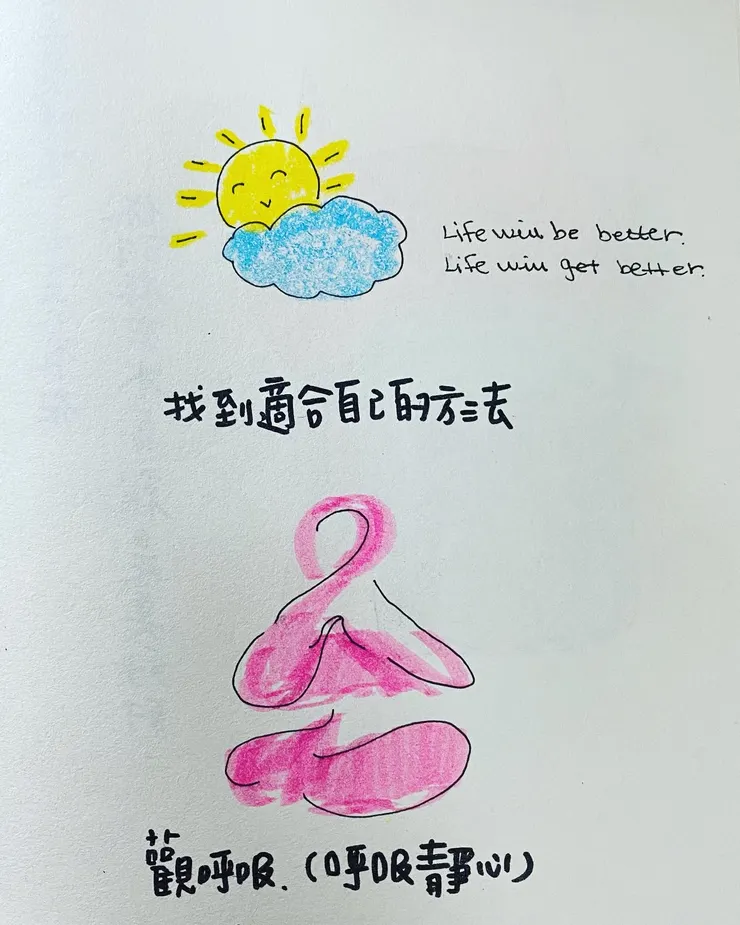 Life will be better.
Life will get better.
找到適合自己的方法
觀呼吸.(呼吸靜心)